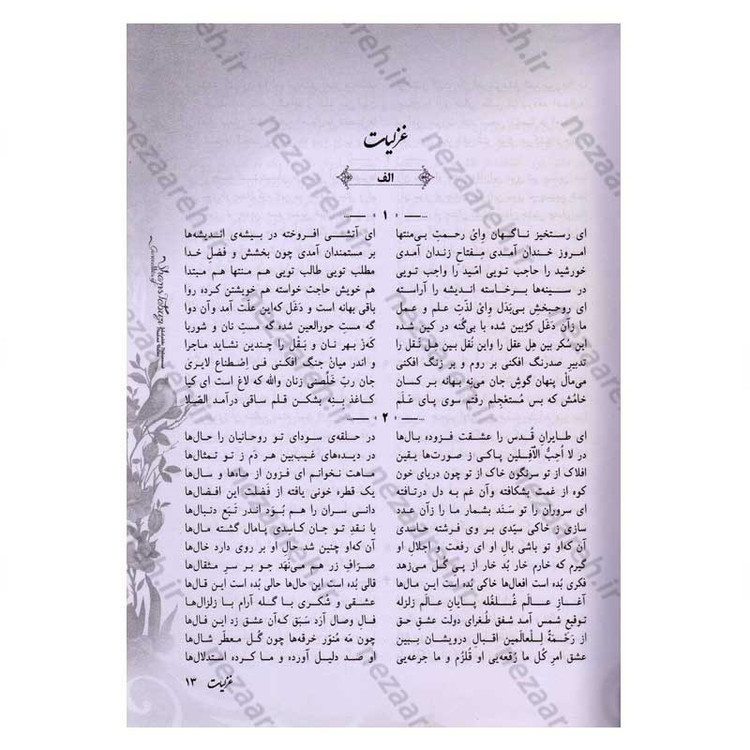 غزلیات
الف
۱
ای رستخیز ناگهان وِای رحمتِ بی‌منتها ای آتشی افروخته در بیشه‌ی اندیشه‌ها
امروز خندان آمدی مِفتاح زندان آمدی بر مستمندان آمدی چون بخشش و فضلِ خدا
خورشید را حاجب تویی امّید را واجب تویی مطلب تویی طالب تویی هم منتها هم مبتدا
در سینه‌ها برخاسته اندیشه را آراسته هم خویش حاجت خواسته هم خویشتن کرده روا
ای روح‌بخشِ بی‌بَدَل وِای لذّتِ علم و عمل باقی بهانه است و دَغَل که‌این علّت آمد وآن دوا
ما زآن دَغَل کژبین شده با بی‌گُنه در کین شده گه مستِ حورالعین شده گه مستِ نان و شوربا
این سُکر بین هِل عقل را واین نُقل بین هِل نَقل را کَز بهر نان و بَقْل را چندین نشاید ماجرا
تدبیرِ صدرنگ افکنی بر روم و بر زنگ افکنی و اندر میانْ جنگ افکنی فی اِصْطِناعٍ لایُری
می‌مالْ پنهان گوشِ جان می‌نِه بهانه بر کسان جان ربِّ خَلِّصنی زنان والله که لاغ است ای کیا
خامُش که بس مُستَعجِلم رفتم سوی پای عَلَم کاغذ بِنِه بِشکن قلم ساقی درآمد الصَّلا
۲
ای طایرانِ قُدس را عشقت فزوده بال‌ها در حلقه‌ی سودای تو روحانیان را حال‌ها
در لا اُحِبُّ الآفِلین پاکی ز صورت‌ها یقین در دیده‌های غیب‌بین هر دَم ز تو تمثال‌ها
افلاک از تو سرنگون خاک از تو چون دریای خون ماهت نخوانم ای فزون از ماه‌ها و سال‌ها
کوه از غمت بشکافته وآن غم به دل درتافته یک قطره خونی یافته از فَضلت این افضال‌ها
ای سَروران را تو سَنَد بشمار ما را زآن عدد دانی سران را هم بُوَد اندر تَبَع دنبال‌ها
سازی ز خاکی سیّدی بر وی فرشته حاسدی با نقدِ تو جان کاسدی پامال گشته مال‌ها
آن که‌او تو باشی بالِ او ای رفعت و اِجلالِ او آن که‌او چنین شد حالِ او بر روی دارد خال‌ها
گیرم که خارم خارِ بُد خار از پی گُل می‌زهد صرّافِ زر هم می‌نَهَد جو بر سرِ مثقال‌ها
فکری بُده است افعال‌ها خاکی بُده است این مال‌ها قالی بُده است این حال‌ها حالی بُده است این قال‌ها
آغازِ عالَم غُلغُله پایانِ عالَم زلزله عشقی و شُکری با گله آرام با زلزال‌ها
توقیعِ شمس آمد شفق طُغرای دولت عشقِ حق فالِ وصال آرَد سَبَق که‌آن عشق زد این فال‌ها
از رَحْمَةً لِلْعالَمین اقبالِ درویشان ببین چون مَه مُنوّر خرقه‌ها چون گُل معطّر شال‌ها
عشق امرِ کُل ما رُقعه‌یی او قُلزُم و ما جرعه‌یی او صد دلیل آورده و ما کرده استدلال‌ها
غزلیات ۱۳